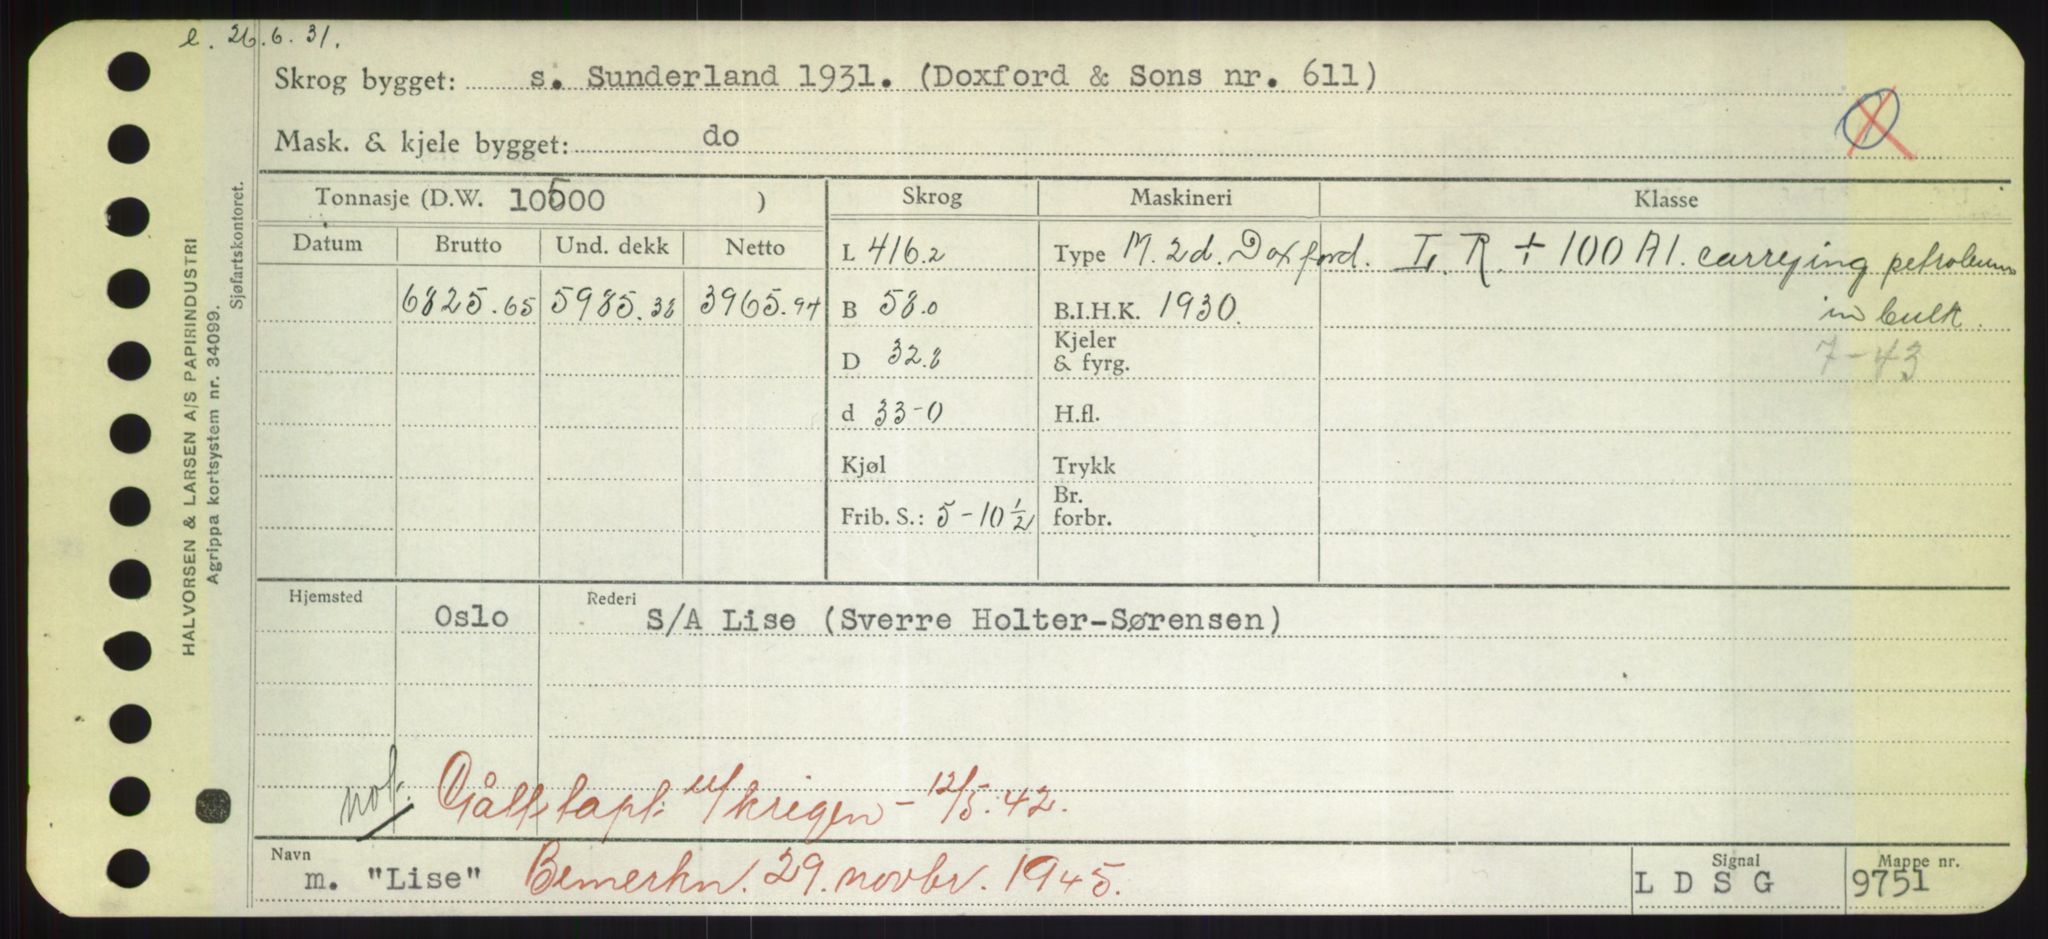 e. 26.6.31.
Skrog bygget: s. Sunderland 1931. (Doxford & Sons nr. 611)
Mask. & kjele bygget: do
1
Tonnasje (D.W. 10500 )
Skrog Maskineri Klasse
Datum Brutto Und. dekk Netto
6825.65 5985.38 3965.94
L 416.2
B 58.0
D 32.8
d 33-0
Kjøl
Frib. S.: 5-10 1/2
Type M. 2d. Doxford.
B.I.H.K. 1930.
Kjeler
& fyrg.
H.fl.
Trykk
Br.
forbr.
L. R. + 100 A1. carrying petroleum
in bulk.
7-43
Hjemsted Rederi
Oslo S/A Lise (Sverre Holter-Sørensen)
not. Gått tapt u/krigen - 12/5.42.
Navn Signal Mappe nr.
m. "Lise" Bemerkn. 29. novbr. 1945. L D S G 9751
HALVORSEN & LARSEN A/S PAPIRINDUSTRI
Agrippa kortsystem nr. 34099.
Sjøfartskontoret.